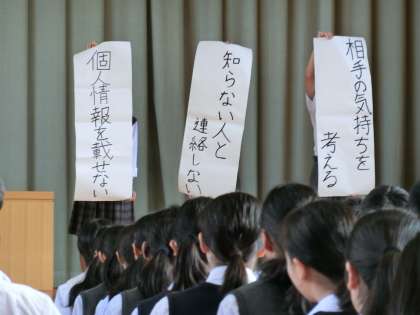 個人情報を載せない
知らない人と
連絡しない
相手の気持ちを
考える